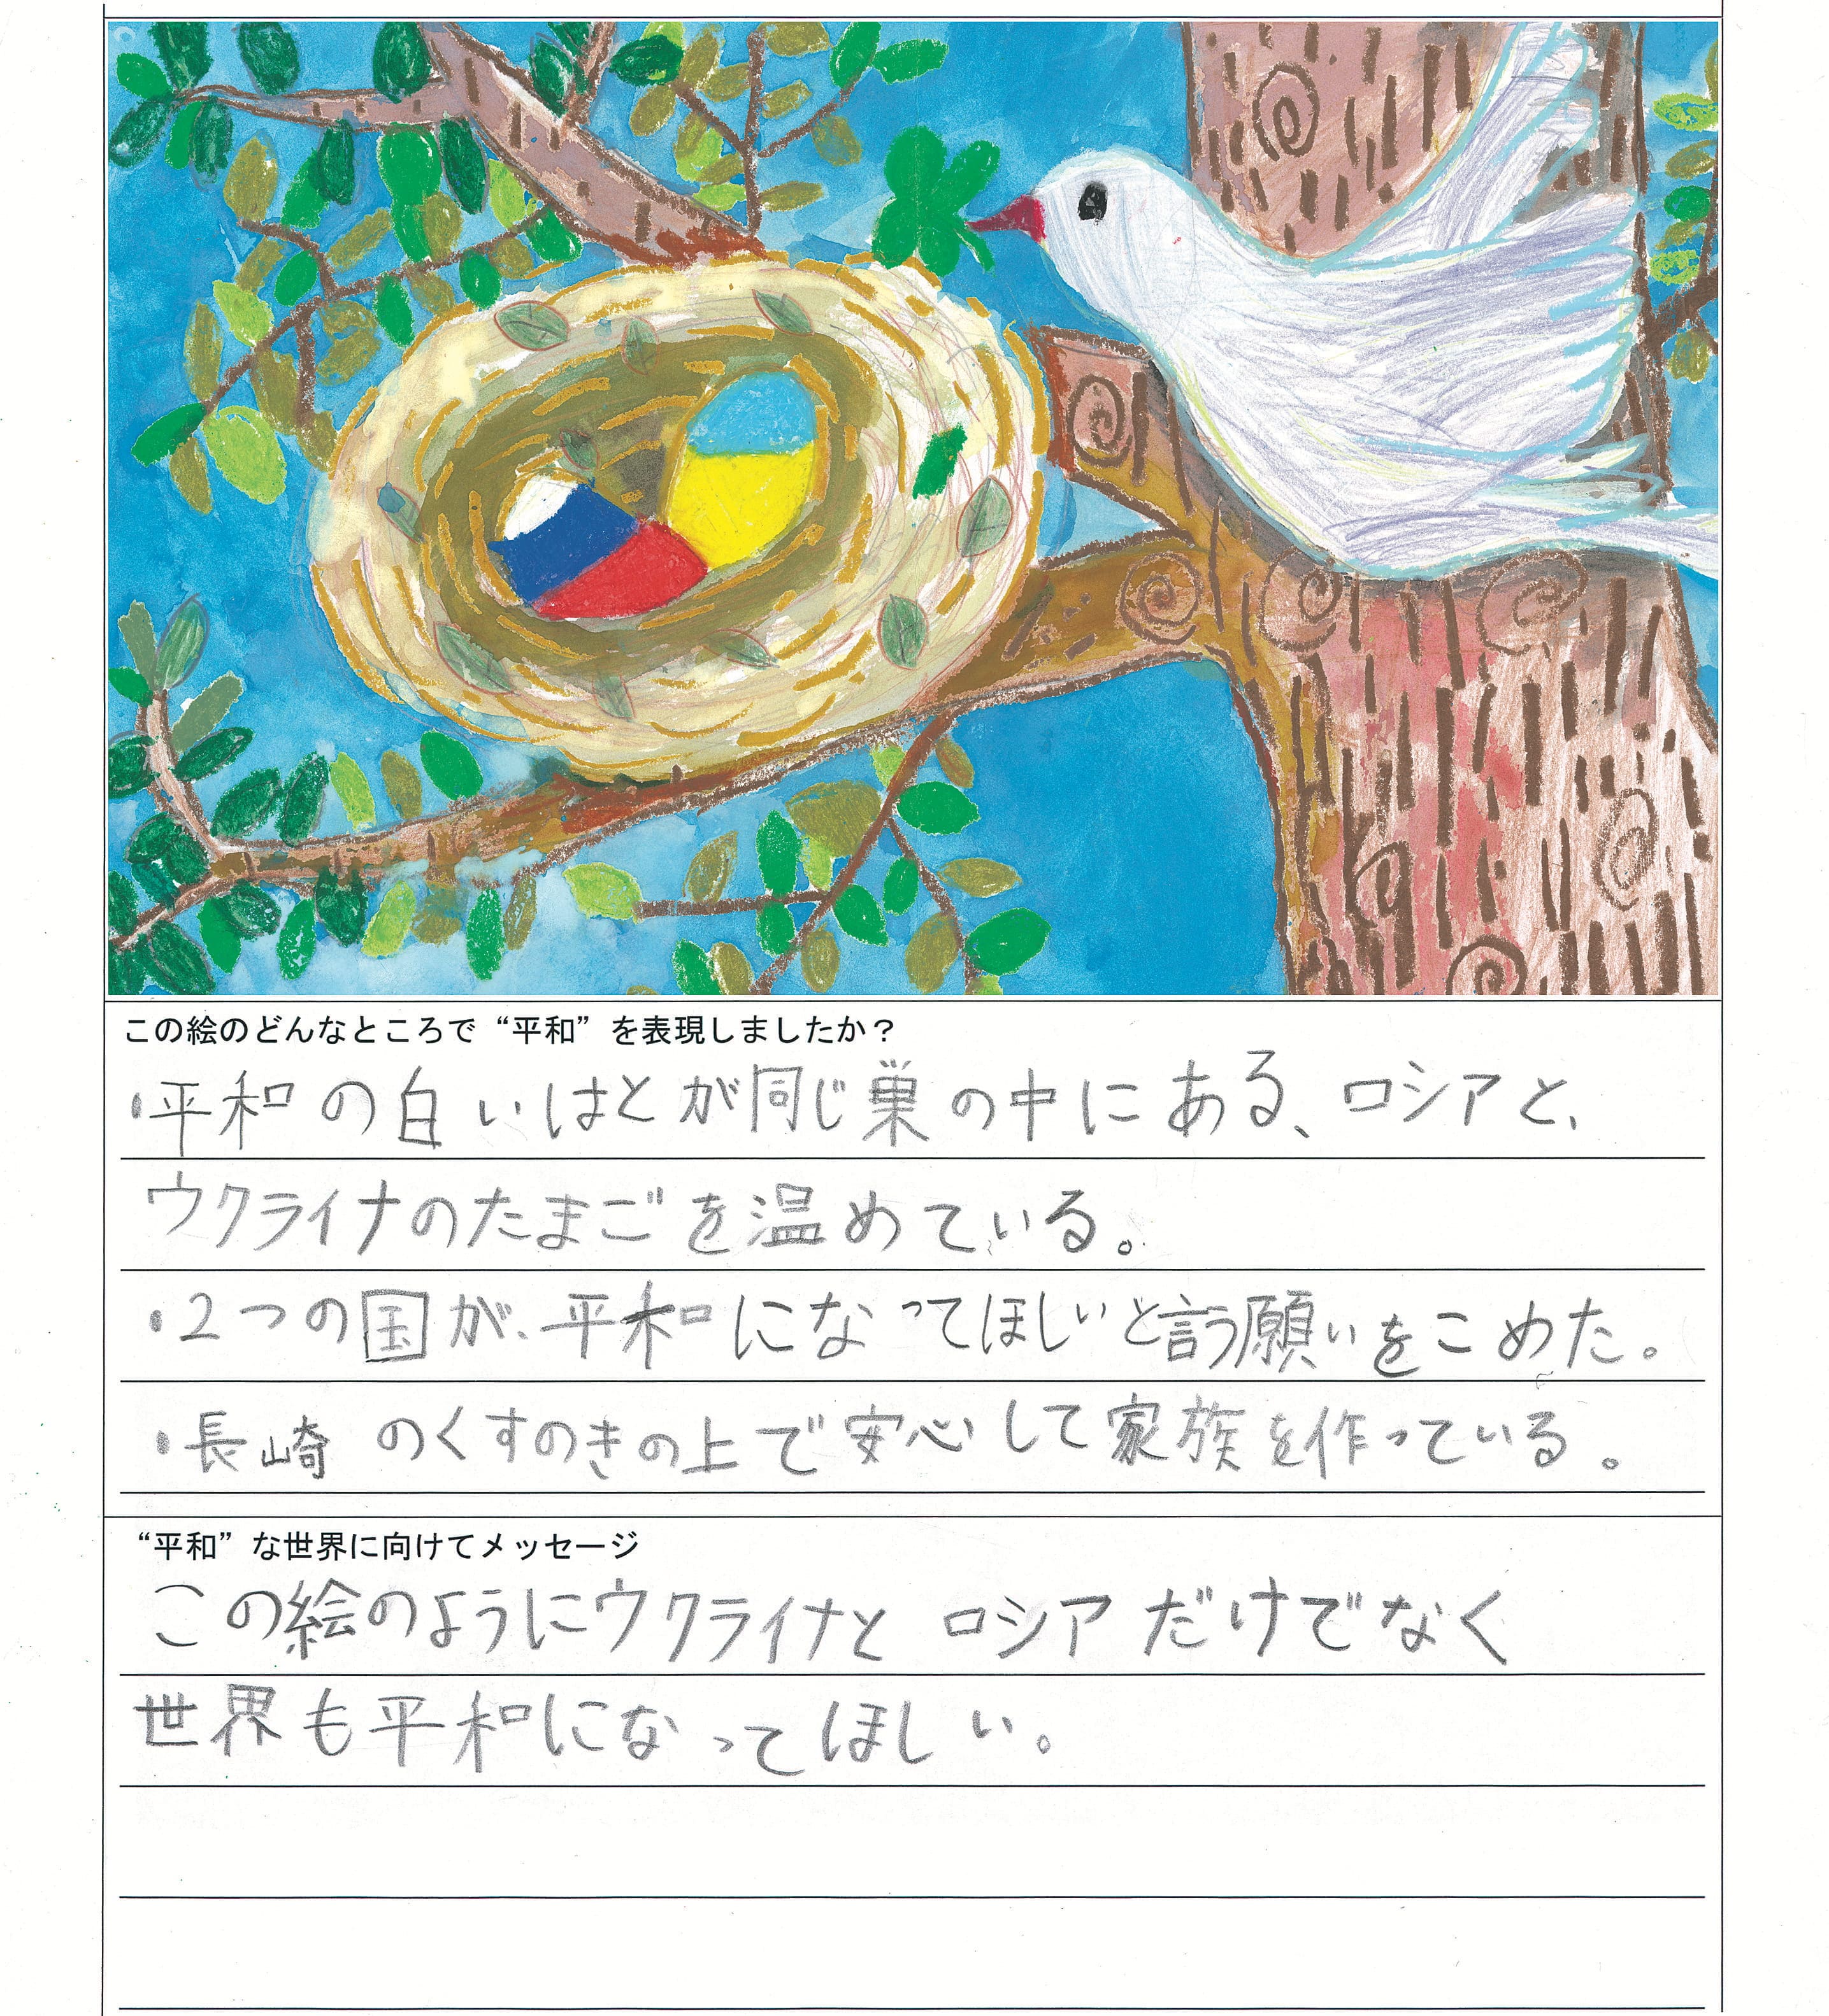 この絵のどんなところで“平和”を表現しましたか？
・平和の白いはとが同じ巣の中にある、ロシアと、
ウクライナのたまごを温めている。
・2つの国が、平和になってほしいと言う願いをこめた。
・長崎のくすのきの上で安心して家族を作っている。
“平和”な世界に向けてメッセージ
この絵のようにウクライナとロシアだけでなく
世界も平和になってほしい。